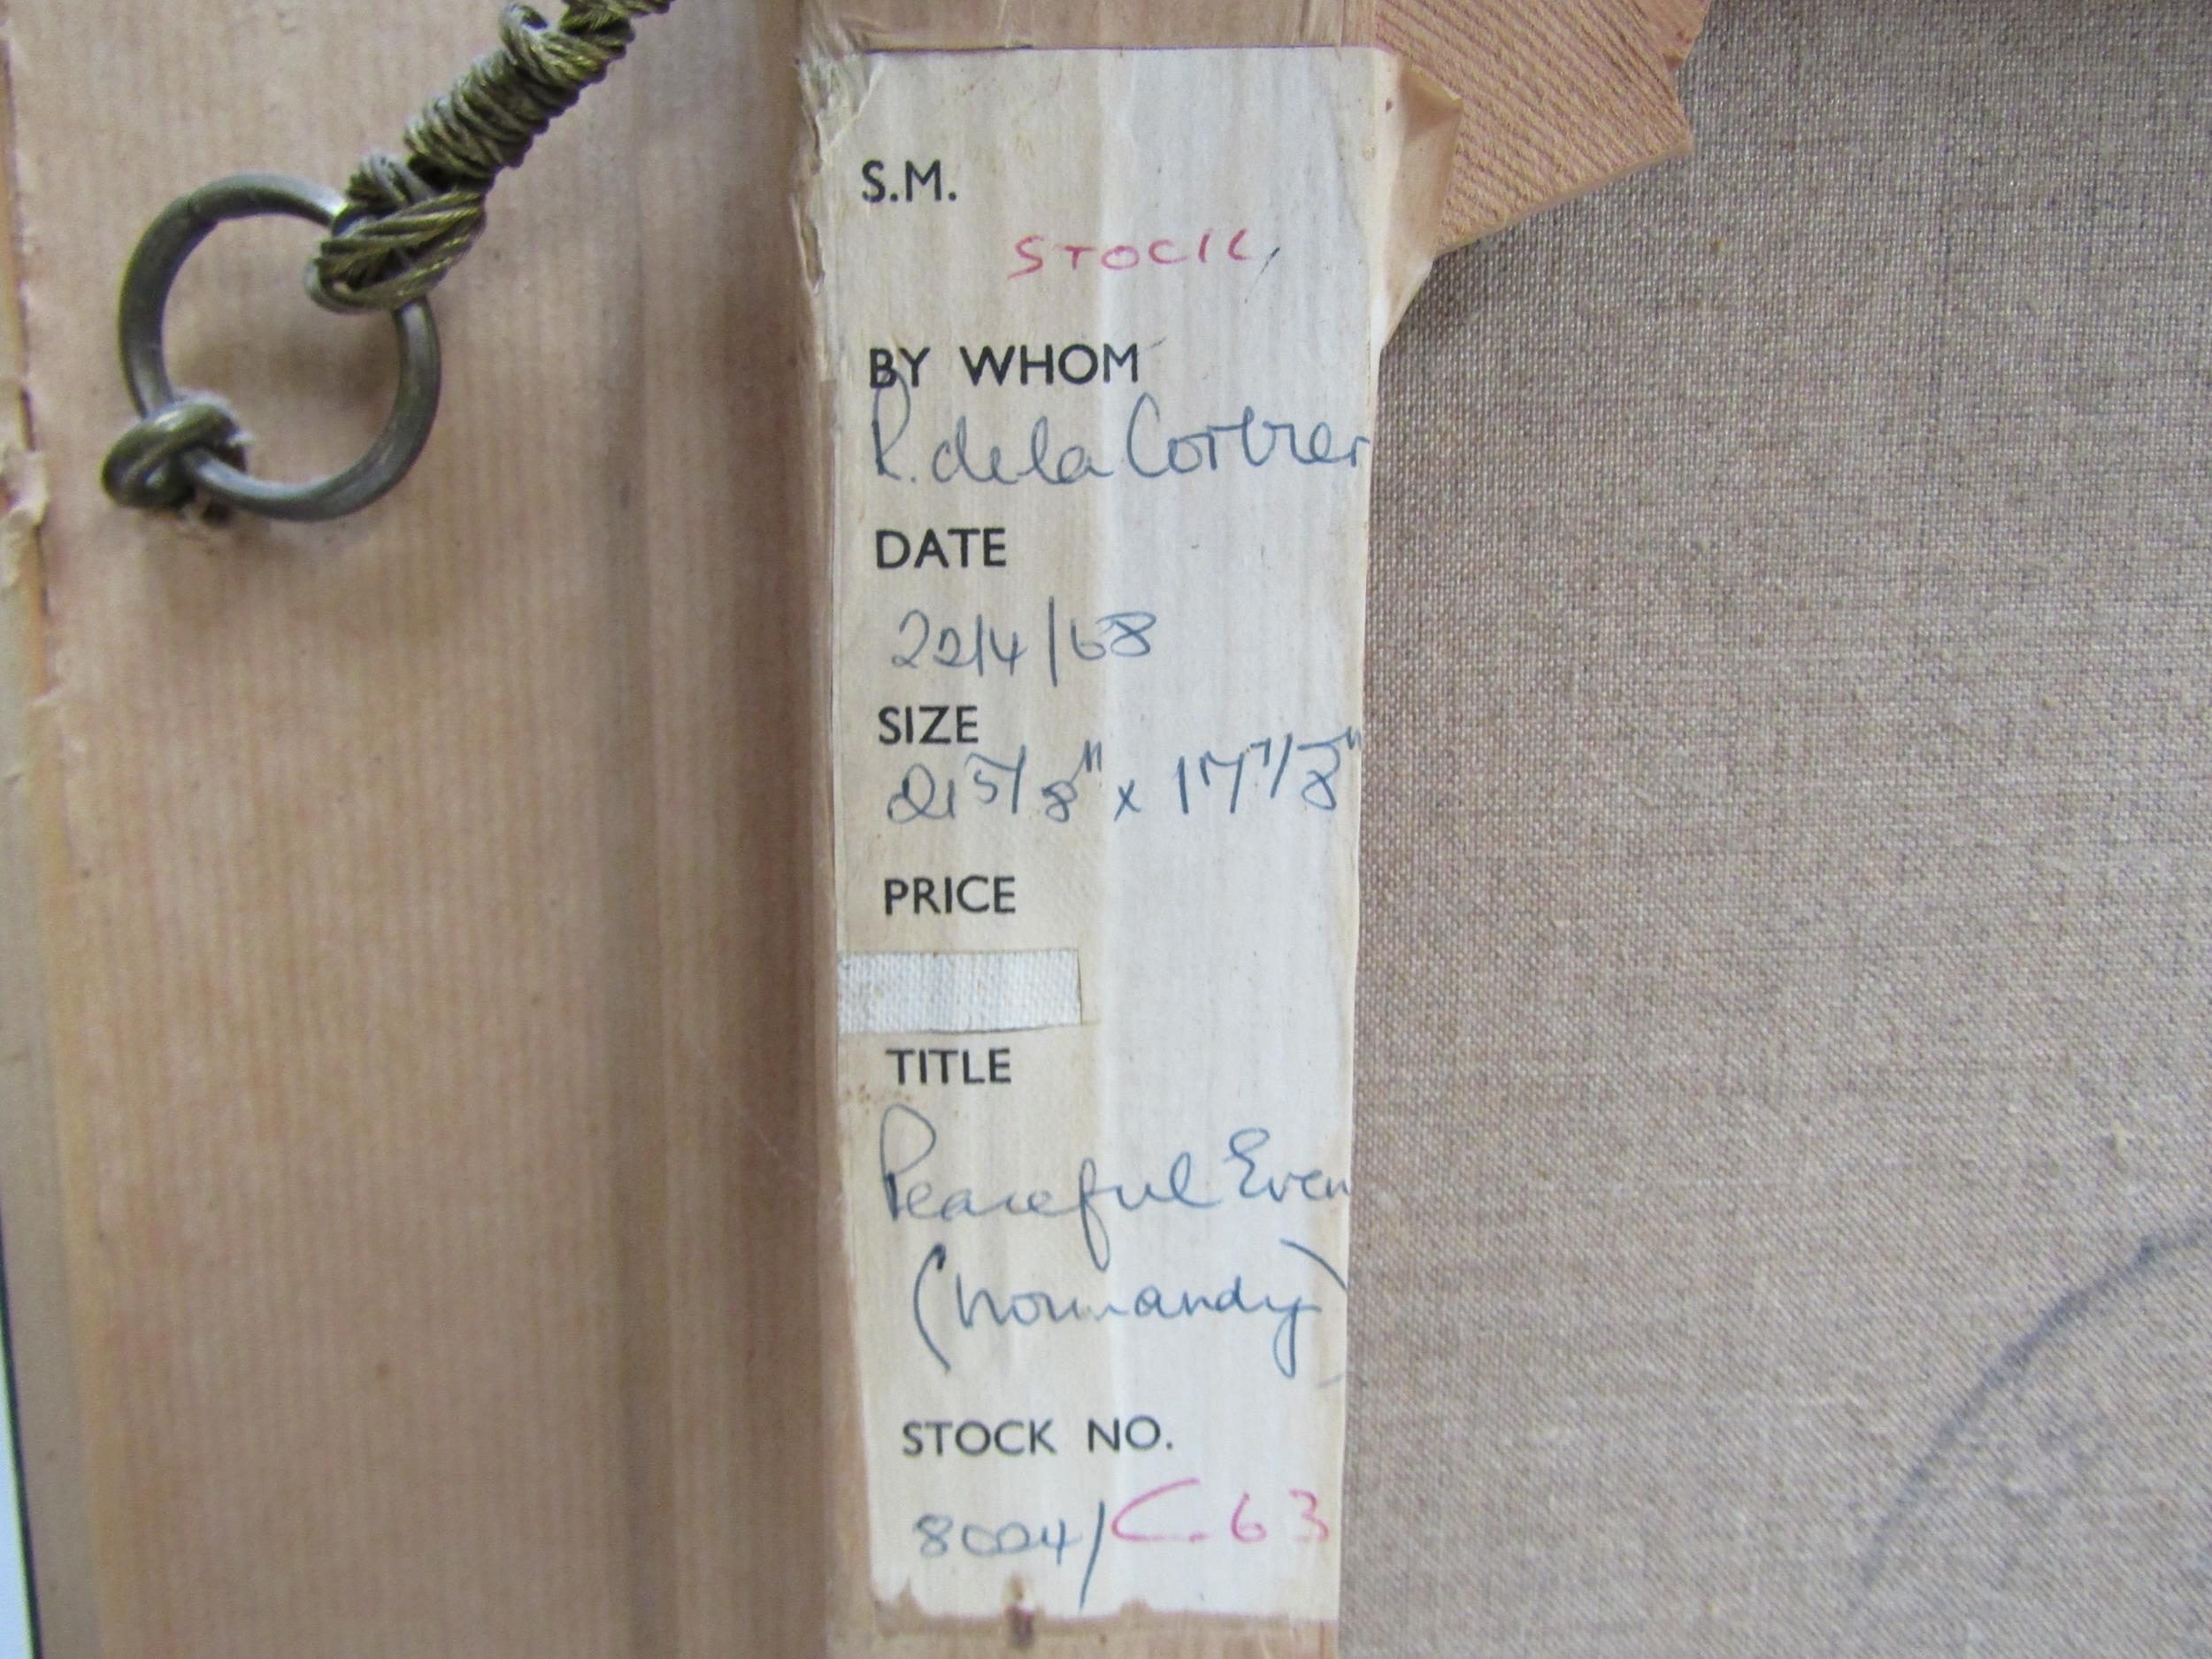 S.M.
STOCK
BY WHOM
R. de la Corbier
DATE
22/4/68
SIZE
21 5/8" x 17 7/8"
PRICE
TITLE
Peaceful Even
(Normandy)
STOCK NO.
8004/C63